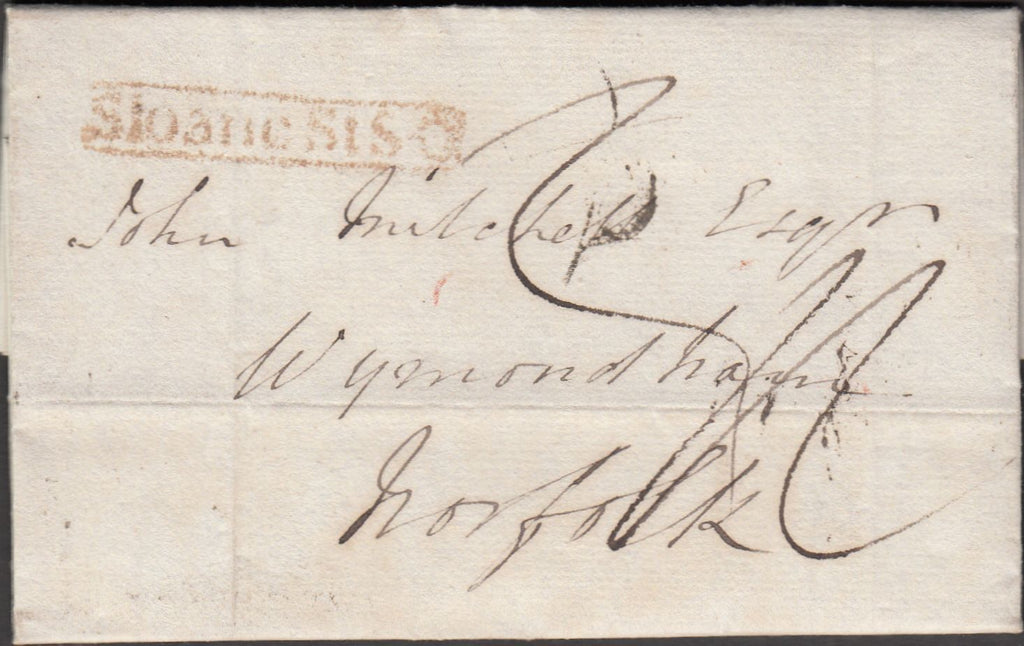 Sloane St S.O
John Mitchell Esqr
Wymondham
Norfolk